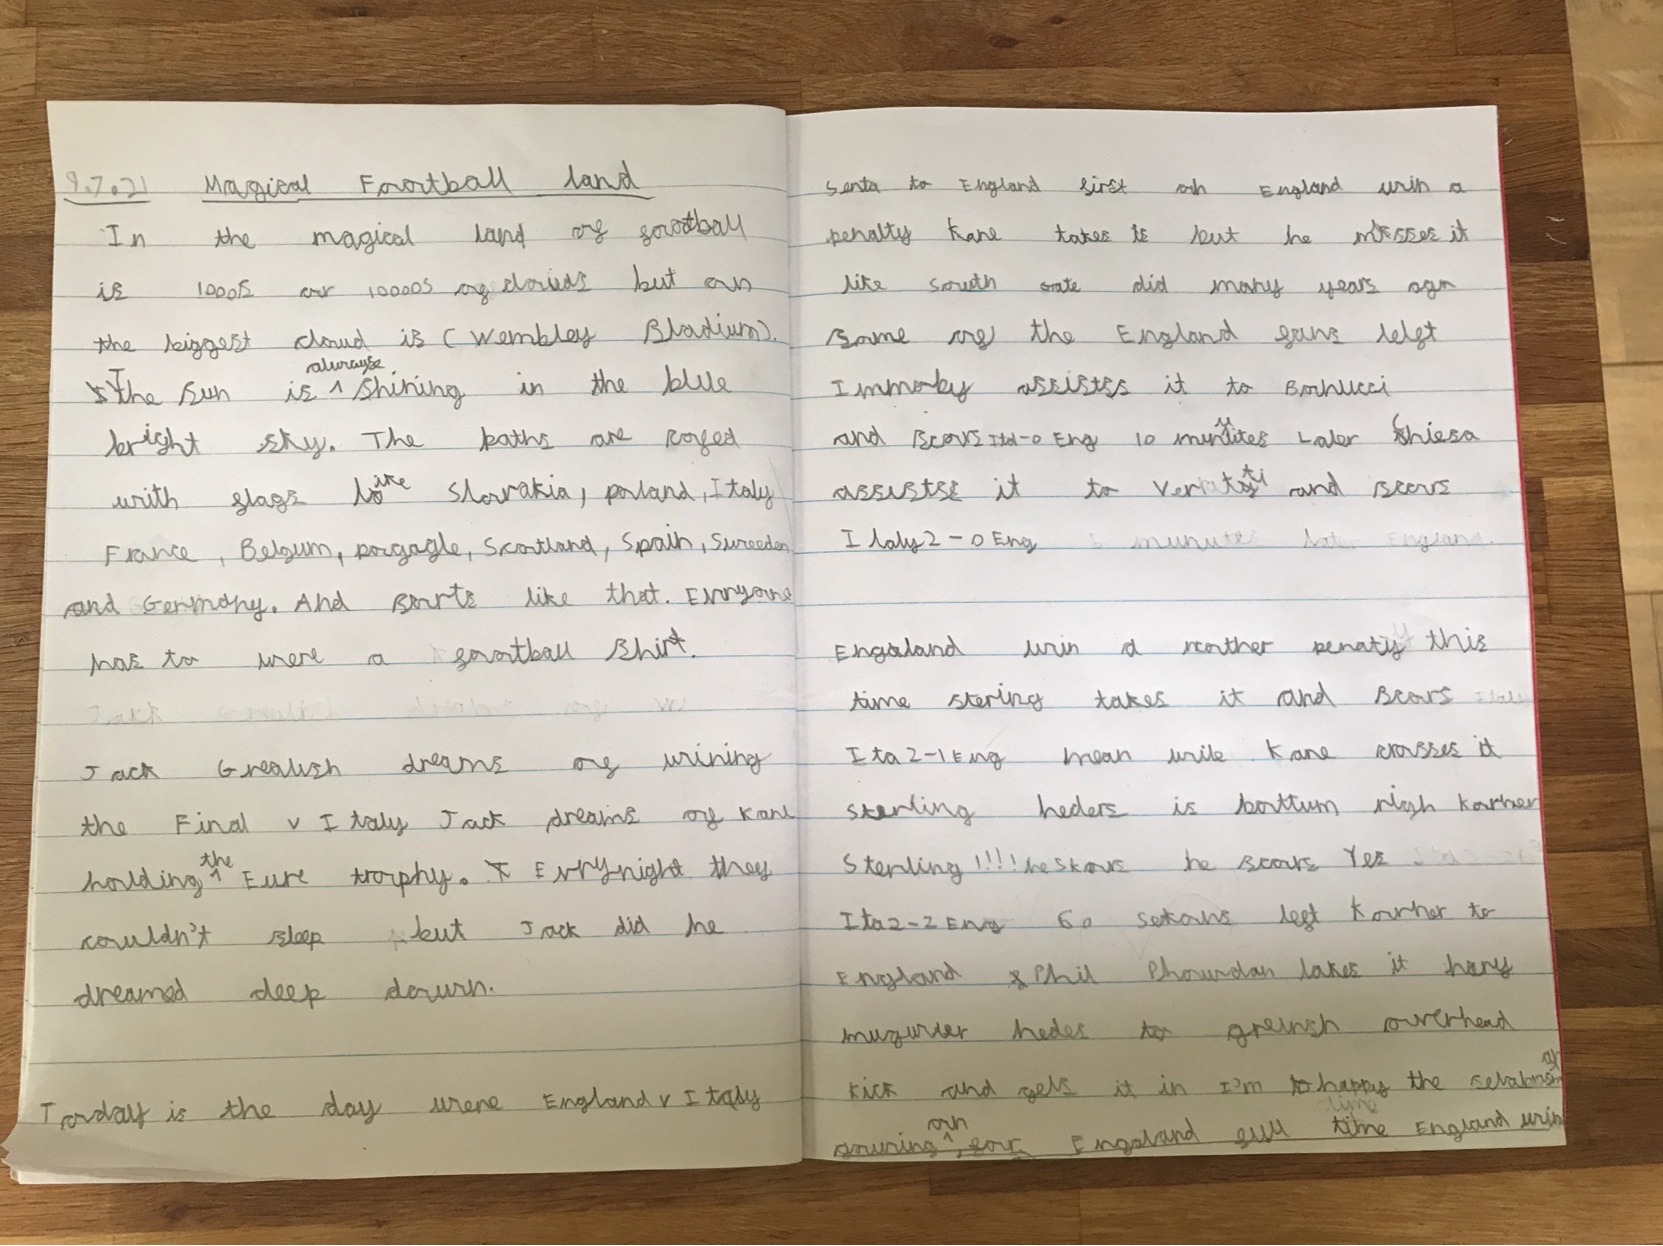 9.7.21 Magical Football land
In the magical land of football
is 1000s or 10000s of clouds but on
the biggest cloud is (Wembley Stadium).
The sun is always shining in the blue
bright sky. The paths are
with flags like Slovakia, poland, Italy
France, Belgum, porgagle, Scotland, Spain, Sweeden
and Germany. And sorts like that. Evryone
has to were a football shirt.
Jack Grealish dreams of wining
the Final v Italy Jack dreams of Kane
holding the Euro trophy. Evrynight they
couldn't sleep but Jack did he
dreamed deep down.
Today is the day were England v Italy
Senta to England first oh England win a
penalty Kane takes it but he misses it
like south gate did many years ago
some of the England fans left
Immoby assistss it to Bonucci
and scors Ita1-0 Eng 10 munites Later Chiesa
assistse it to Verratti and scors
Italy2-0 Eng 1 munute later England.
England win a nother penaty this
time stering takes it and scors
Ita2-1 Eng mean wile Kane crosses it
sterling heders is bottum righ korner
Sterling!!!! he skors he scors Yes
Ita2-2 Eng 60 sekons left Korner to
England Phil Phowdan takes it hary
muguier hedes to grelish overhead
kick and gets it in I'm to happy the
gowing on, for England full time England win